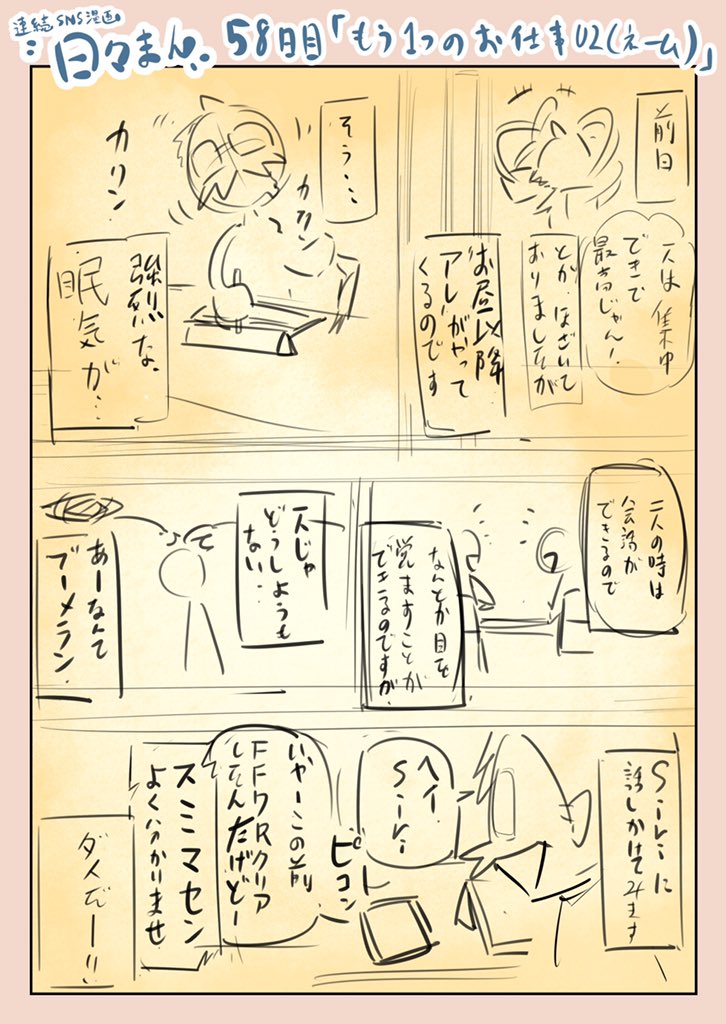 連続SNS漫画
日々まん
58日目「もう1つのお仕事02(ネーム)」
前日
一人は集中
できで
最高じゃん!
とか、ほざいて
おりましたが
お昼以降
アレがやって
くるのです
そう…
カリン
カリン
強烈な、
眠気が…
二人の時は
会話が
できるので
なんとか目を
覚ますことが
できるのですが
一人じゃ
どうしようも
ない…
て
あーなんて
ブーメラン
Siriに
話しかけてみます
ヘイ
Siri
ピコン
いやーこの前
FF7Rクリア
したんだけどー
スミマセン
よく分かりませ
ダメだー!!